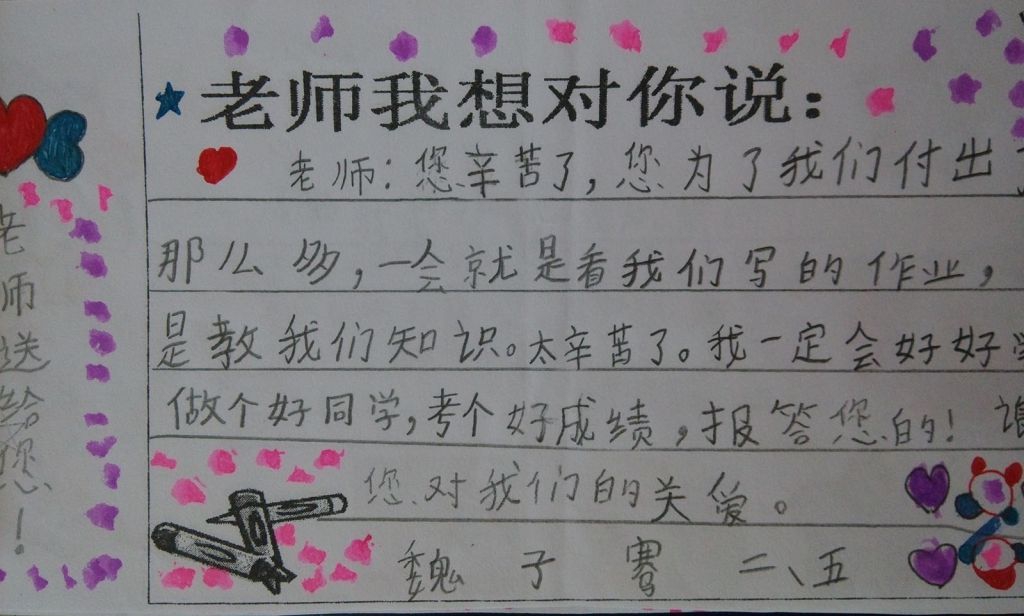 老师我想对你说：
老师：您辛苦了，您为了我们付出了
那么多，一会就是看我们写的作业，
是教我们知识。太辛苦了。我一定会好好学
做个好同学，考个好成绩，报答您的！谢
您对我们的关爱。
魏子骞 二、五
老师送给您！